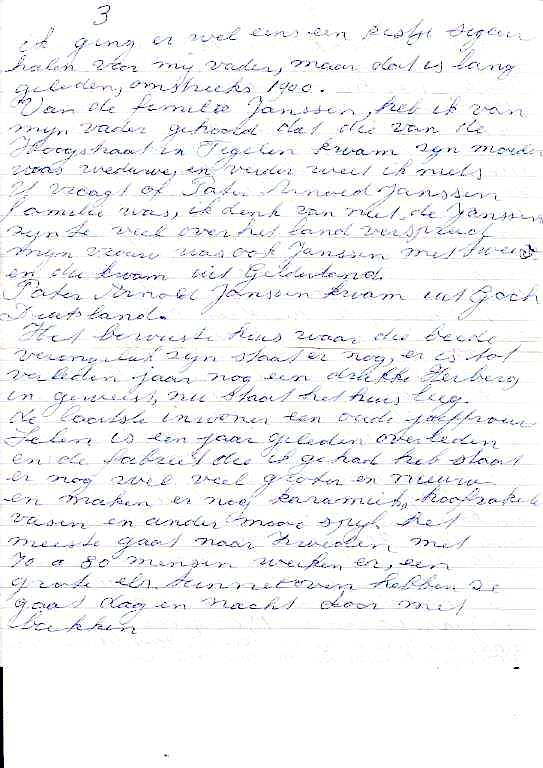 3
ik ging er wel eens een kistje sigaren
halen voor mij vader, maar dat is lang
geleden, omstreeks 1900.
Van de familie Janssen, heb ik van
mijn vader gehoord dat die van de
Hoogstraat in Tegelen kwam zyn moeder
was weduwe, en verder weet ik niets
U vraagt of Pater Arnold Janssen
familie was, ik denk van niet, de Janssen
zyn te veel over het land verspreid
mijn vrouw was ook Janssen met twee s
en die kwam uit Gelderland.
Pater Arnold Janssen kwam uit Goch
Duitsland.
Het bewuste huis waar die beide
verongelukt zyn staat er nog, er is tot
verleden jaar nog een drukke Herberg
in geweest, nu staat het huis leeg.
de laatste inwoner een oude joffrouw
is een jaar geleden overleden
en de fabriek die ik gehad heb staat
er nog wel veel groter en nieuw
en maken er nog karamiek,
vasen en ander mooi spul, het
meeste gaat naar Zweden met
70 a 80 mensen werken er, een
grote tunneloven hebben ze
gaat dag en nacht door met
bakken